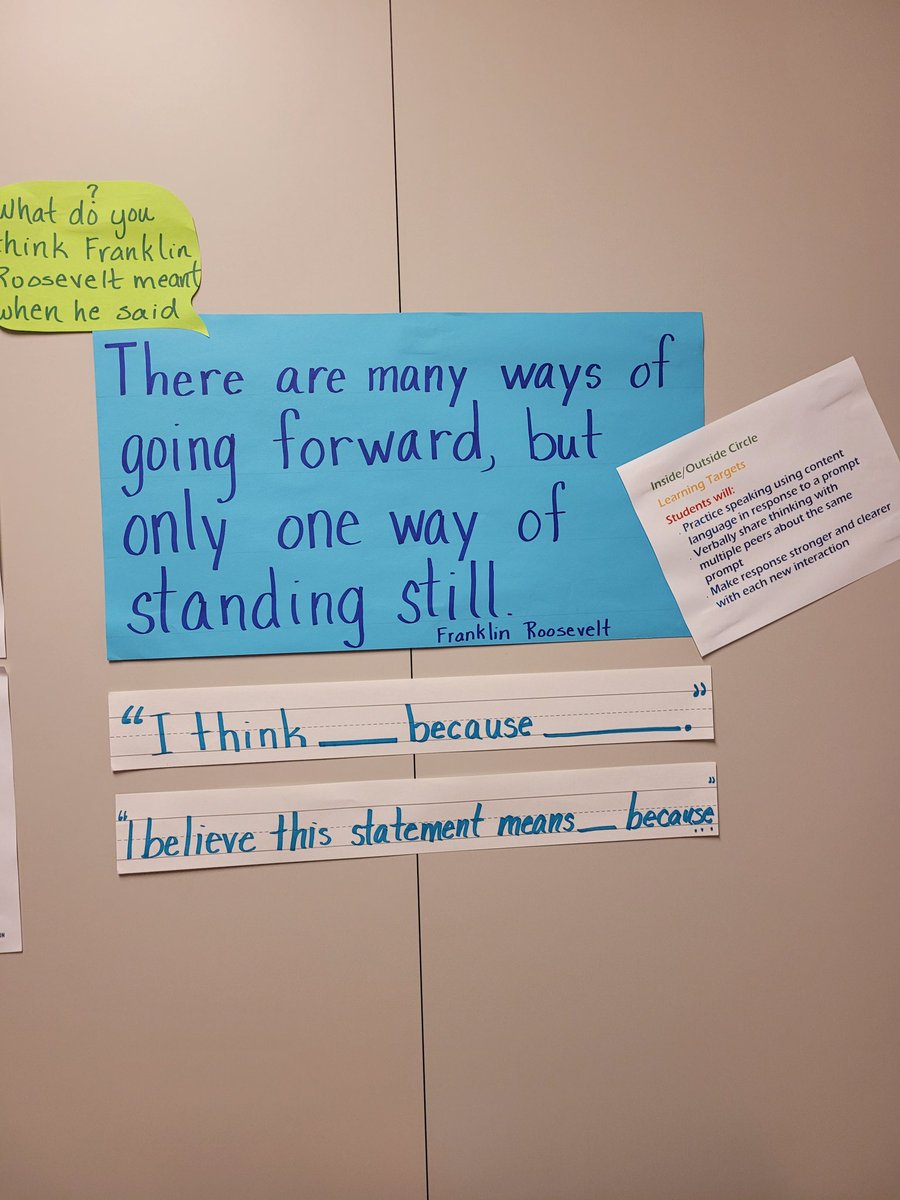 ?
What do you
think Franklin
Roosevelt meant
when he said
There are many ways of
going forward, but
only one way of
standing still.
Franklin Roosevelt
Inside/Outside Circle
Learning Targets
Students will:
. Practice speaking using content
language in response to a prompt
. Verbally share thinking with
multiple peers about the same
prompt
. Make response stronger and clearer
with each new interaction
“I think ___ because ______.”
“I believe this statement means __ because...”